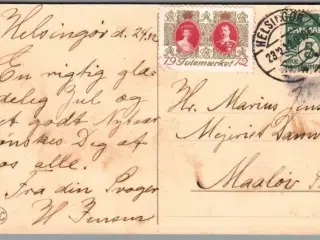 Helsingør d. 24/12
En rigtig glæ
delig Jul og
et godt Nytaar
ønskes Dig af
os alle.
Fra din Svoger
H Jensen
19 Julemærket 12
HELSINGØR
DANMARK
5
Hr. Marius Jensen
Mejeriet Danm
Maaløv